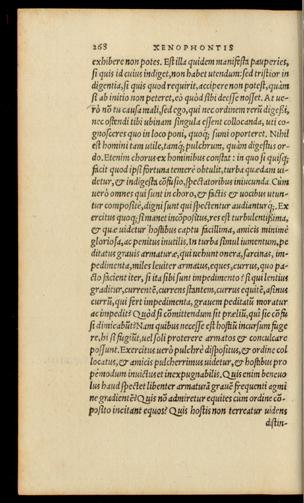 268 XENOPHONTIS
exhibere non potes. Est illa quidem manifesta pauperies,
si quis id cuius indiget, non habet utendum: sed tristior in
digentia, si quis quod requirit, accipere non potest, quàm
si ab initio non peteret, eò quòd sibi decesse nosset. At ue-
rò nõ tu causa mali, sed ego, qui nec ordinem rerũ digessi,
nec ostendi tibi ubinam singula essent collocanda, uti co-
gnosceres quo in loco poni, quoq; sumi oporteret. Nihil
est homini tam utile, tamq; pulchrum, quàm digestus or-
do. Etenim chorus ex hominibus constat: in quo si quisq;
facit quod ipsi fortuna temerè obtulit, turba quædam ui-
detur, & indigesta cõfusio, spectatoribus iniucunda. Cùm
uerò omnes qui sunt in choro, & factis & uocibus utun-
tur compositè, digni sunt qui spectentur audianturq;. Ex
ercitus quoq; si manet incõpositus, res est turbulentissima,
& quæ uidetur hostibus captu facillima, amicis minimè
gloriosa, ac penitus inutilis. In turba simul iumentum, pe
ditatus grauis armaturæ, qui uehunt onera, sarcinas, im-
pedimenta, miles leuiter armatus, eques, currus, quo pa-
cto facient iter, si ita sibi sunt impedimento? si qui lentius
graditur, currentẽ, currens stantem, currus equitẽ, asinus
currũ, qui fert impedimenta, grauem peditatũ moratur
ac impedit? Quòd si cõmittendum sit præliũ, quî sic cõfu
si dimicabũt? Nam quibus necesse est hostiũ incursum fuge
re, hi si fugiũt, uel soli proterere armatos & conculcare
possunt. Exercitus uerò pulchrè dispositus, & ordine col
locatus, & amicis pulcherrimus uidetur, & hostibus pro
pemodum inuictus et inexpugnabilis. Quis enim beneuo
lus haud spectet libenter armaturã grauẽ frequenti agmi
ne gradientẽ? Quis nõ admiretur equites cùm ordine cõ-
posito incitant equos? Quis hostis non terreatur uidens
distin-